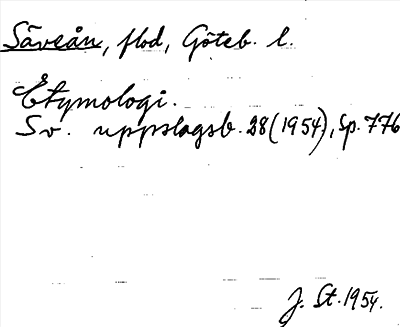 Säveån, flod, Göteb. l.
Etymologi.
Sv. uppslagsb. 28 (1954), sp. 776
J. St. 1954.